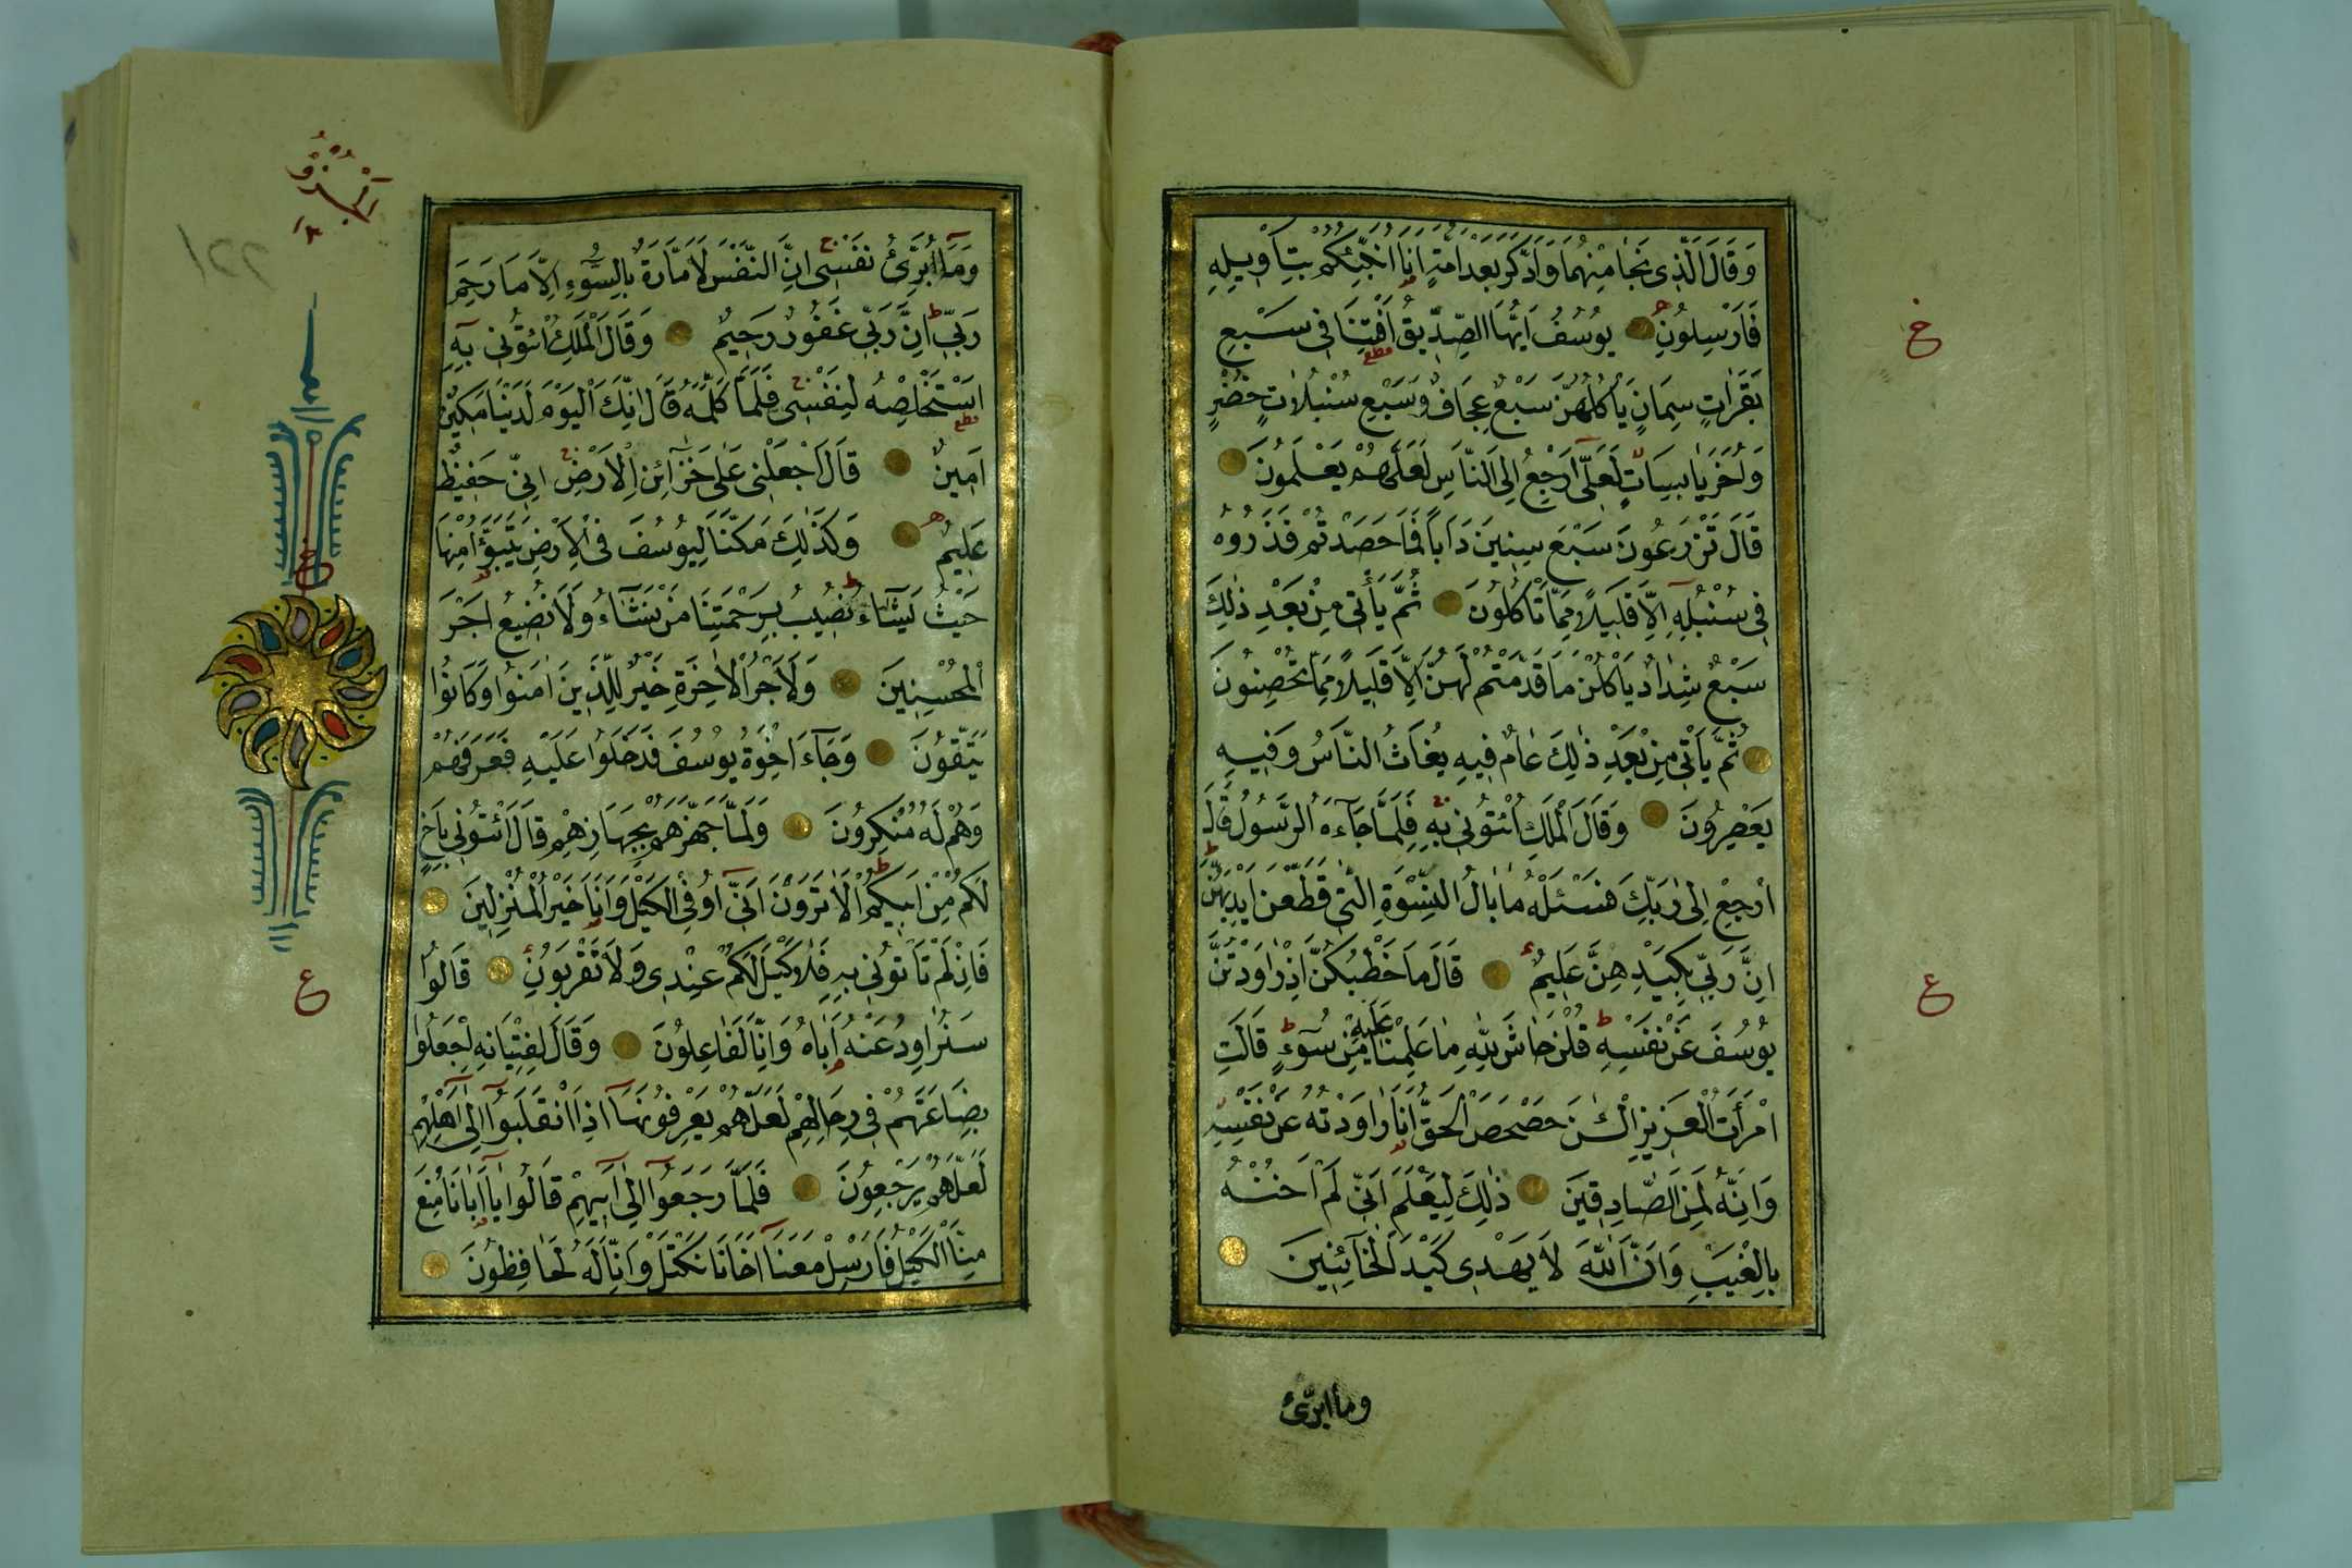 وَقَالَ الَّذِى نَجَا مِنْهُمَا وَادَّكَرَ بَعْدَ اُمَّةٍ اَنَا۬ اُنَبِّئُكُمْ بِتَاْوِيلِهِ
فَاَرْسِلُونِ يُوسُفُ اَيُّهَا الصِّدِّيقُ اَفْتِنَا فِى سَبْعِ
بَقَرَاتٍ سِمَانٍ يَاْكُلُهُنَّ سَبْعٌ عِجَافٌ وَسَبْعِ سُنْبُلَاتٍ خُضْرٍ
وَاُخَرَ يَابِسَاتٍ لَعَلِّى اَرْجِعُ اِلَى النَّاسِ لَعَلَّهُمْ يَعْلَمُونَ
قَالَ تَزْرَعُونَ سَبْعَ سِنِينَ دَاَبًا فَمَا حَصَدْتُمْ فَذَرُوهُ
فِى سُنْبُلِهِ اِلَّا قَلِيلًا مِمَّا تَاْكُلُونَ ثُمَّ يَاْتِى مِنْ بَعْدِ ذٰلِكَ
سَبْعٌ شِدَادٌ يَاْكُلْنَ مَا قَدَّمْتُمْ لَهُنَّ اِلَّا قَلِيلًا مِمَّا تُحْصِنُونَ
ثُمَّ يَاْتِى مِنْ بَعْدِ ذٰلِكَ عَامٌ فِيهِ يُغَاثُ النَّاسُ وَفِيهِ
يَعْصِرُونَ وَقَالَ الْمَلِكُ ائْتُونِى بِهِ فَلَمَّا جَآءَهُ الرَّسُولُ قَالَ
ارْجِعْ اِلٰى رَبِّكَ فَسْئَلْهُ مَا بَالُ النِّسْوَةِ الّٰتِى قَطَّعْنَ اَيْدِيَهُنَّ
اِنَّ رَبِّى بِكَيْدِهِنَّ عَلِيمٌ قَالَ مَا خَطْبُكُنَّ اِذْ رَاوَدْتُنَّ
يُوسُفَ عَنْ نَفْسِهِ قُلْنَ حَاشَ لِلّٰهِ مَا عَلِمْنَا عَلَيْهِ مِنْ سُوٓءٍ قَالَتِ
امْرَاَتُ الْعَزِيزِ الْـٰٔنَ حَصْحَصَ الْحَقُّ اَنَا رَاوَدْتُهُ عَنْ نَفْسِهِ
وَاِنَّهُ لَمِنَ الصَّادِقِينَ ذٰلِكَ لِيَعْلَمَ اَنِّى لَمْ اَخُنْهُ
بِالْغَيْبِ وَاَنَّ اللّٰهَ لَا يَهْدِى كَيْدَ الْخَآئِنِينَ
وما ابرّئ
خ
ع
وَمَآ اُبَرِّئُ نَفْسِى اِنَّ النَّفْسَ لَاَمَّارَةٌ بِالسُّوٓءِ اِلَّا مَا رَحِمَ
رَبِّى اِنَّ رَبِّى غَفُورٌ رَحِيمٌ وَقَالَ الْمَلِكُ ائْتُونِى بِهِ
اَسْتَخْلِصْهُ لِنَفْسِى فَلَمَّا كَلَّمَهُ قَالَ اِنَّكَ الْيَوْمَ لَدَيْنَا مَكِينٌ
اَمِينٌ قَالَ اجْعَلْنِى عَلٰى خَزَآئِنِ الْاَرْضِ اِنِّى حَفِيظٌ
عَلِيمٌ وَكَذٰلِكَ مَكَّنَّا لِيُوسُفَ فِى الْاَرْضِ يَتَبَوَّؤُا مِنْهَا
حَيْثُ يَشَآءُ نُصِيبُ بِرَحْمَتِنَا مَنْ نَشَآءُ وَلَا نُضِيعُ اَجْرَ
الْمُحْسِنِينَ وَلَاَجْرُ الْاٰخِرَةِ خَيْرٌ لِلَّذِينَ اٰمَنُوا وَكَانُوا
يَتَّقُونَ وَجَآءَ اِخْوَةُ يُوسُفَ فَدَخَلُوا عَلَيْهِ فَعَرَفَهُمْ
وَهُمْ لَهُ مُنْكِرُونَ وَلَمَّا جَهَّزَهُمْ بِجَهَازِهِمْ قَالَ ائْتُونِى بِاَخٍ
لَكُمْ مِنْ اَبِيكُمْ اَلَا تَرَوْنَ اَنِّىٓ اُوفِى الْكَيْلَ وَاَنَا خَيْرُ الْمُنْزِلِينَ
فَاِنْ لَمْ تَاْتُونِى بِهِ فَلَا كَيْلَ لَكُمْ عِنْدِى وَلَا تَقْرَبُونِ قَالُوا
سَنُرَاوِدُ عَنْهُ اَبَاهُ وَاِنَّا لَفَاعِلُونَ وَقَالَ لِفِتْيَانِهِ اجْعَلُوا
بِضَاعَتَهُمْ فِى رِحَالِهِمْ لَعَلَّهُمْ يَعْرِفُونَهَآ اِذَا انْقَلَبُوٓا اِلٰىٓ اَهْلِهِمْ
لَعَلَّهُمْ يَرْجِعُونَ فَلَمَّا رَجَعُوٓا اِلٰىٓ اَبِيهِمْ قَالُوا يَآ اَبَانَا مُنِعَ
مِنَّا الْكَيْلُ فَاَرْسِلْ مَعَنَآ اَخَانَا نَكْتَلْ وَاِنَّا لَهُ لَحَافِظُونَ
الجزؤ
٢٢١
ع